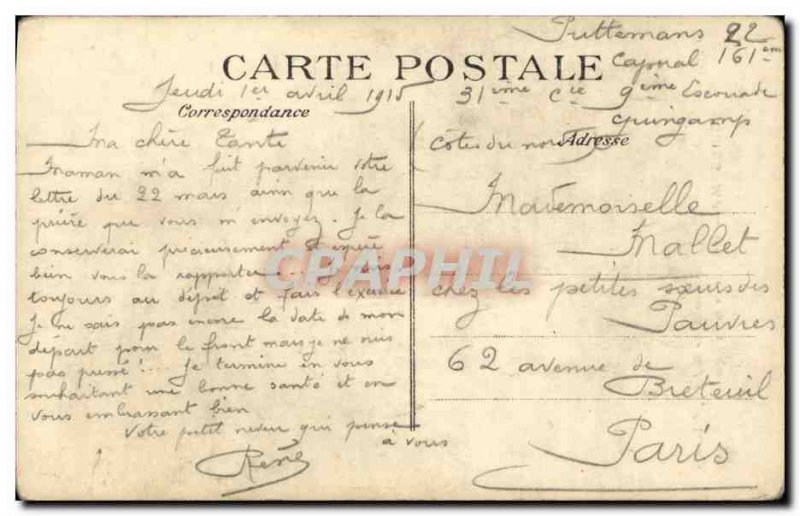 Puttemans 22
CARTE POSTALE
Caporal 161em
Jeudi 1er avril 1915
31ème Cie 9ème Escouade
Correspondance
Guingamp
Côtes du nord
Adresse
Ma chère Tante
Maman m'a fait parvenir votre
lettre du 22 mars ainsi que la
prière que vous m'envoyez. Je la
conserverai précieusement et espère
bien vous la rapporter. Je suis
toujours au dépôt et fais l'exercice
Je ne sais pas encore la date de mon
départ pour le front mais je ne suis
pas pressé!... Je termine en vous
souhaitant une bonne santé et en
vous embrassant bien
Votre petit neveu qui pense
à vous
René
Mademoiselle
Mallet
chez les petites sœurs des
Pauvres
62 avenue de
Breteuil
Paris
CPAPHIL